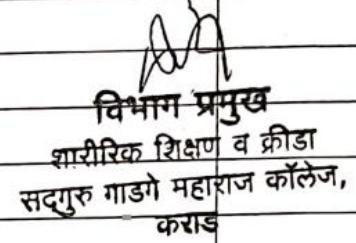 विभाग प्रमुख
शारीरिक शिक्षण व क्रीडा
सद्गुरु गाडगे महाराज कॉलेज,
कराड